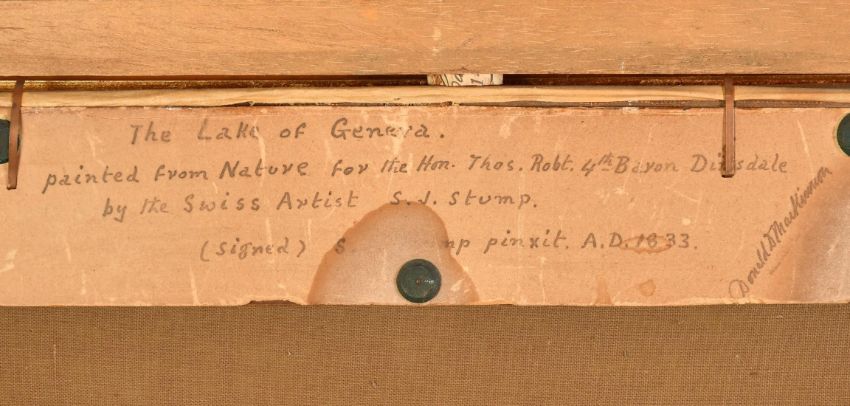 The Lake of Geneva.
painted from Nature for the Hon. Thos. Robt. 4th Baron Dimsdale
by the Swiss Artist S. J. Stump.
(Signed) S mp pinxit. A.D. 1833.
Donald D MacKinnon